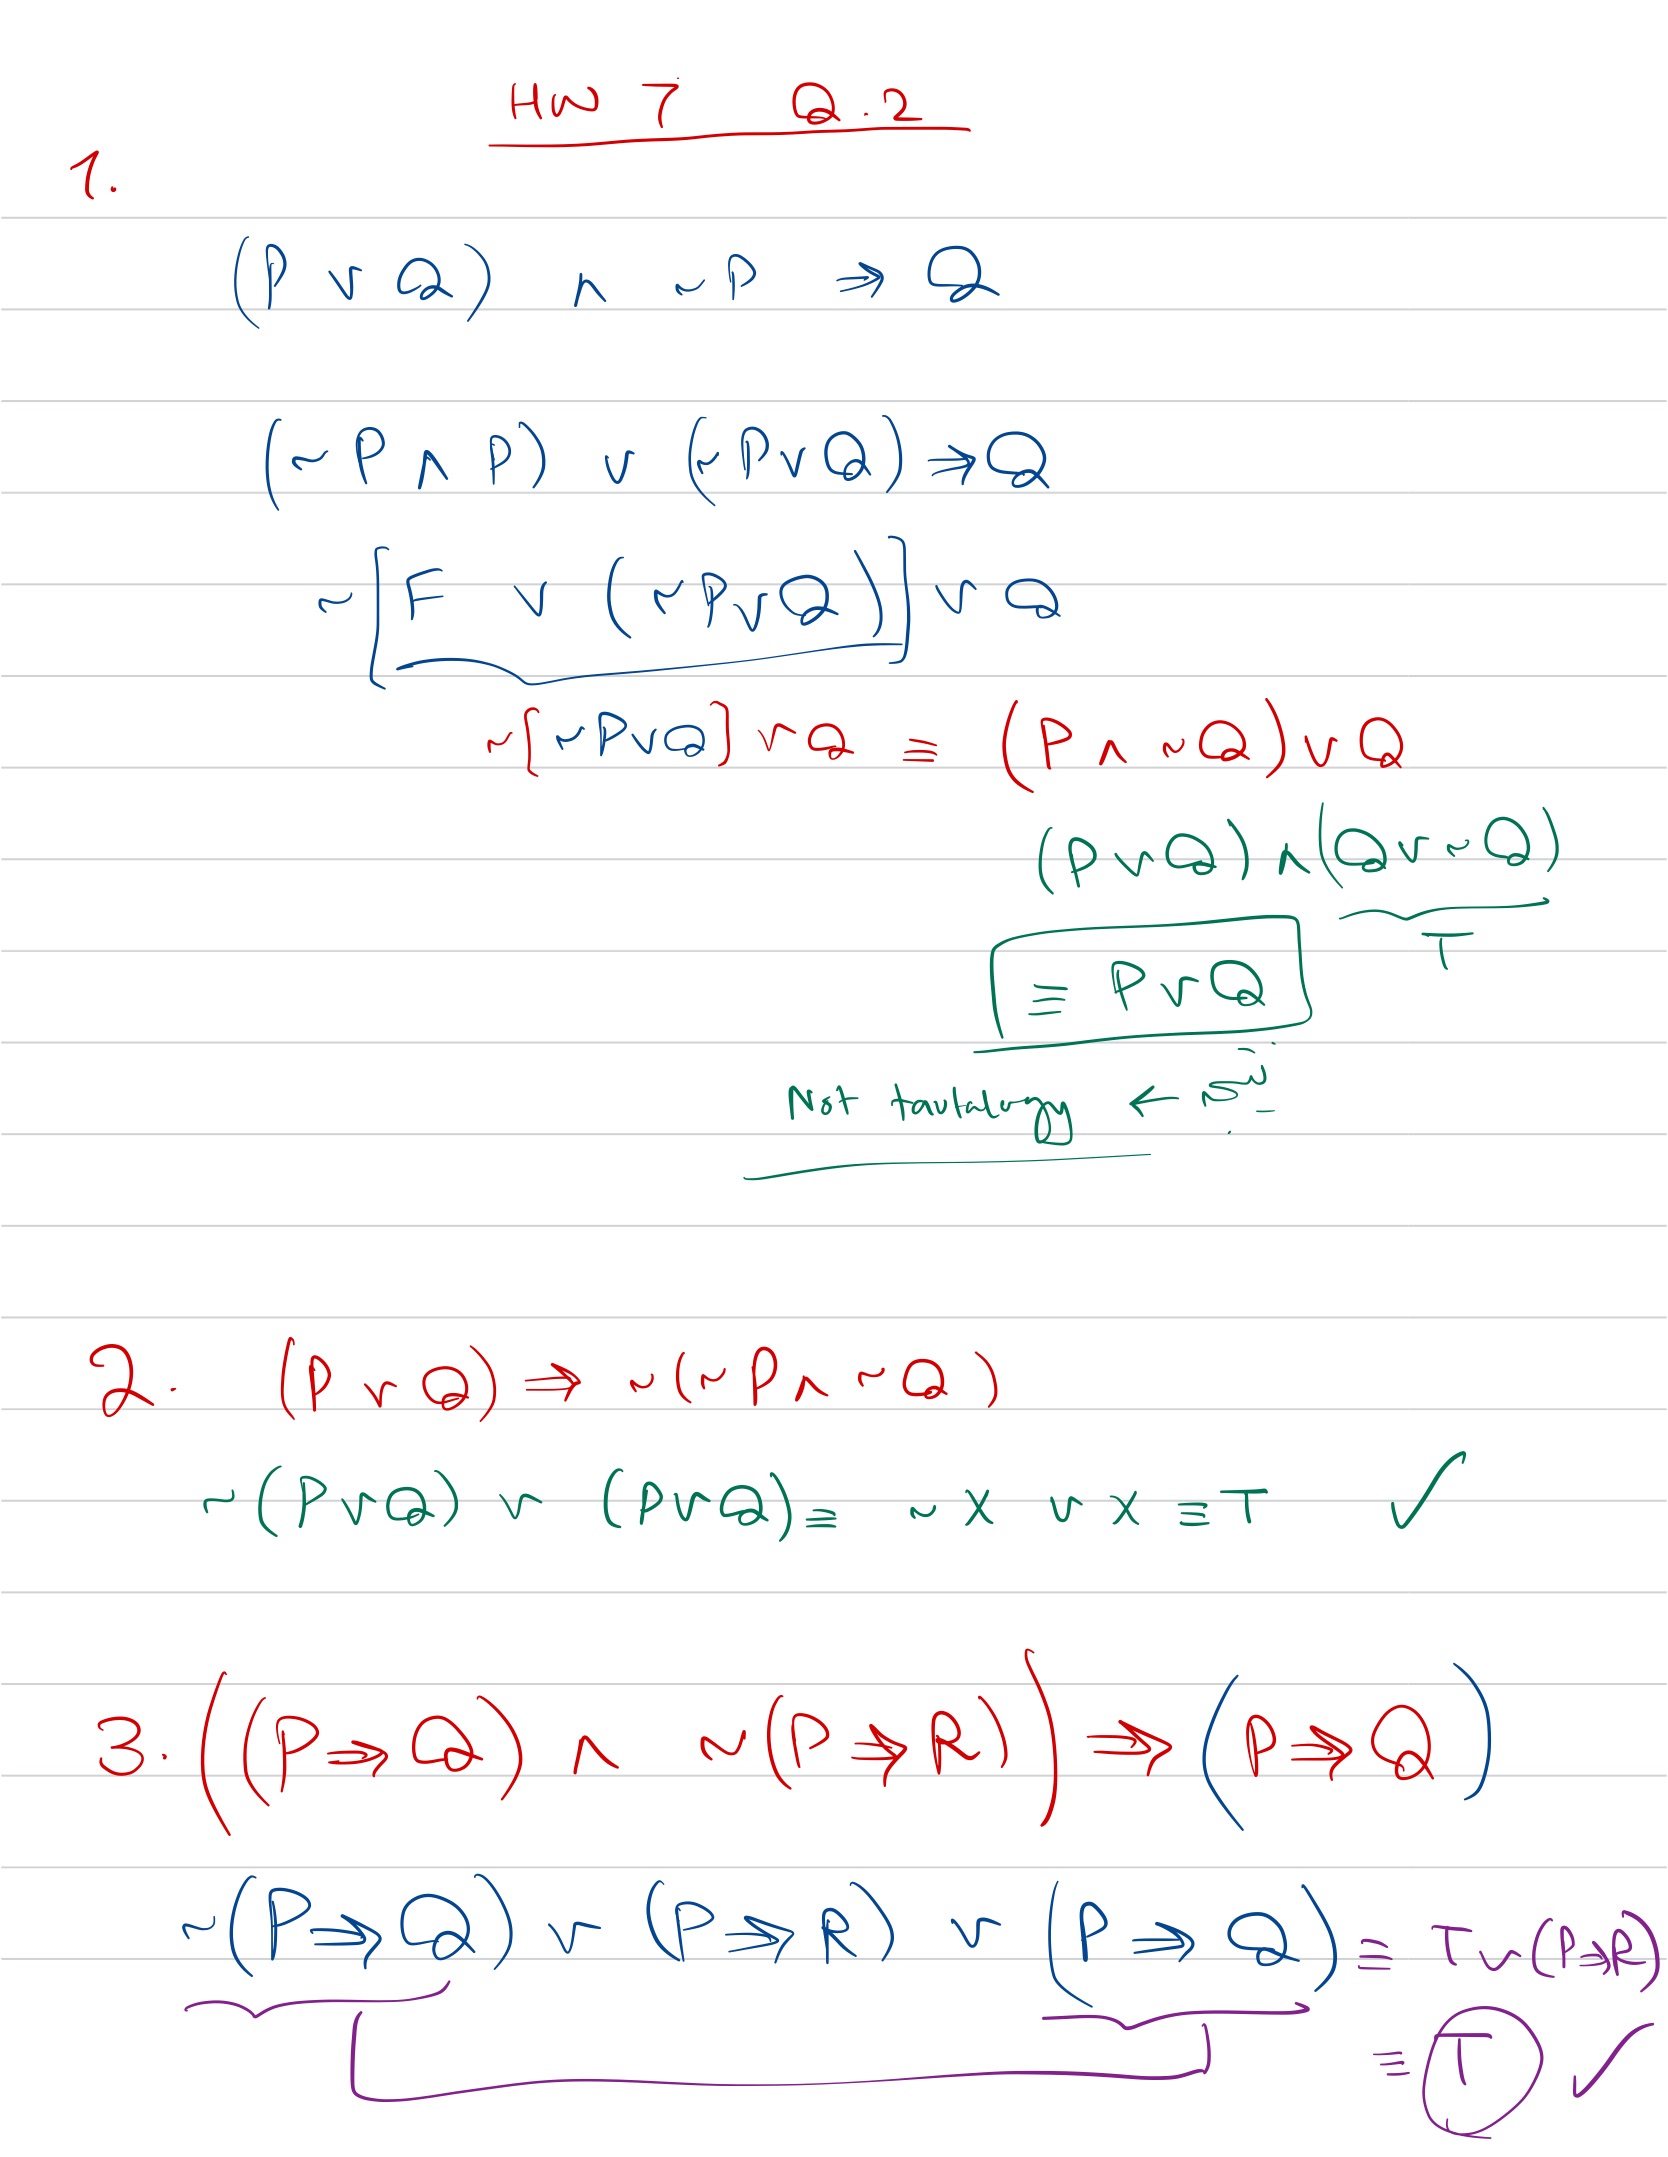 HW 7 Q.2
1.
(P ∨ Q) ∧ ~P ⇒ Q
(~P ∧ P) ∨ (~P ∨ Q) ⇒ Q
~[F ∨ (~P ∨ Q)] ∨ Q
~[~P ∨ Q] ∨ Q ≡ (P ∧ ~Q) ∨ Q
(P ∨ Q) ∧ (Q ∨ ~Q)
T
≡ P ∨ Q
Not tautology ←
2. (P ∨ Q) ⇒ ~(~P ∧ ~Q)
~(P ∨ Q) ∨ (P ∨ Q) ≡ ~X ∨ X ≡ T ✓
3. ((P ⇒ Q) ∧ ~(P ⇒ R)) ⇒ (P ⇒ Q)
~(P ⇒ Q) ∨ (P ⇒ R) ∨ (P ⇒ Q) ≡ T ∨ (P ⇒ R)
≡ T ✓